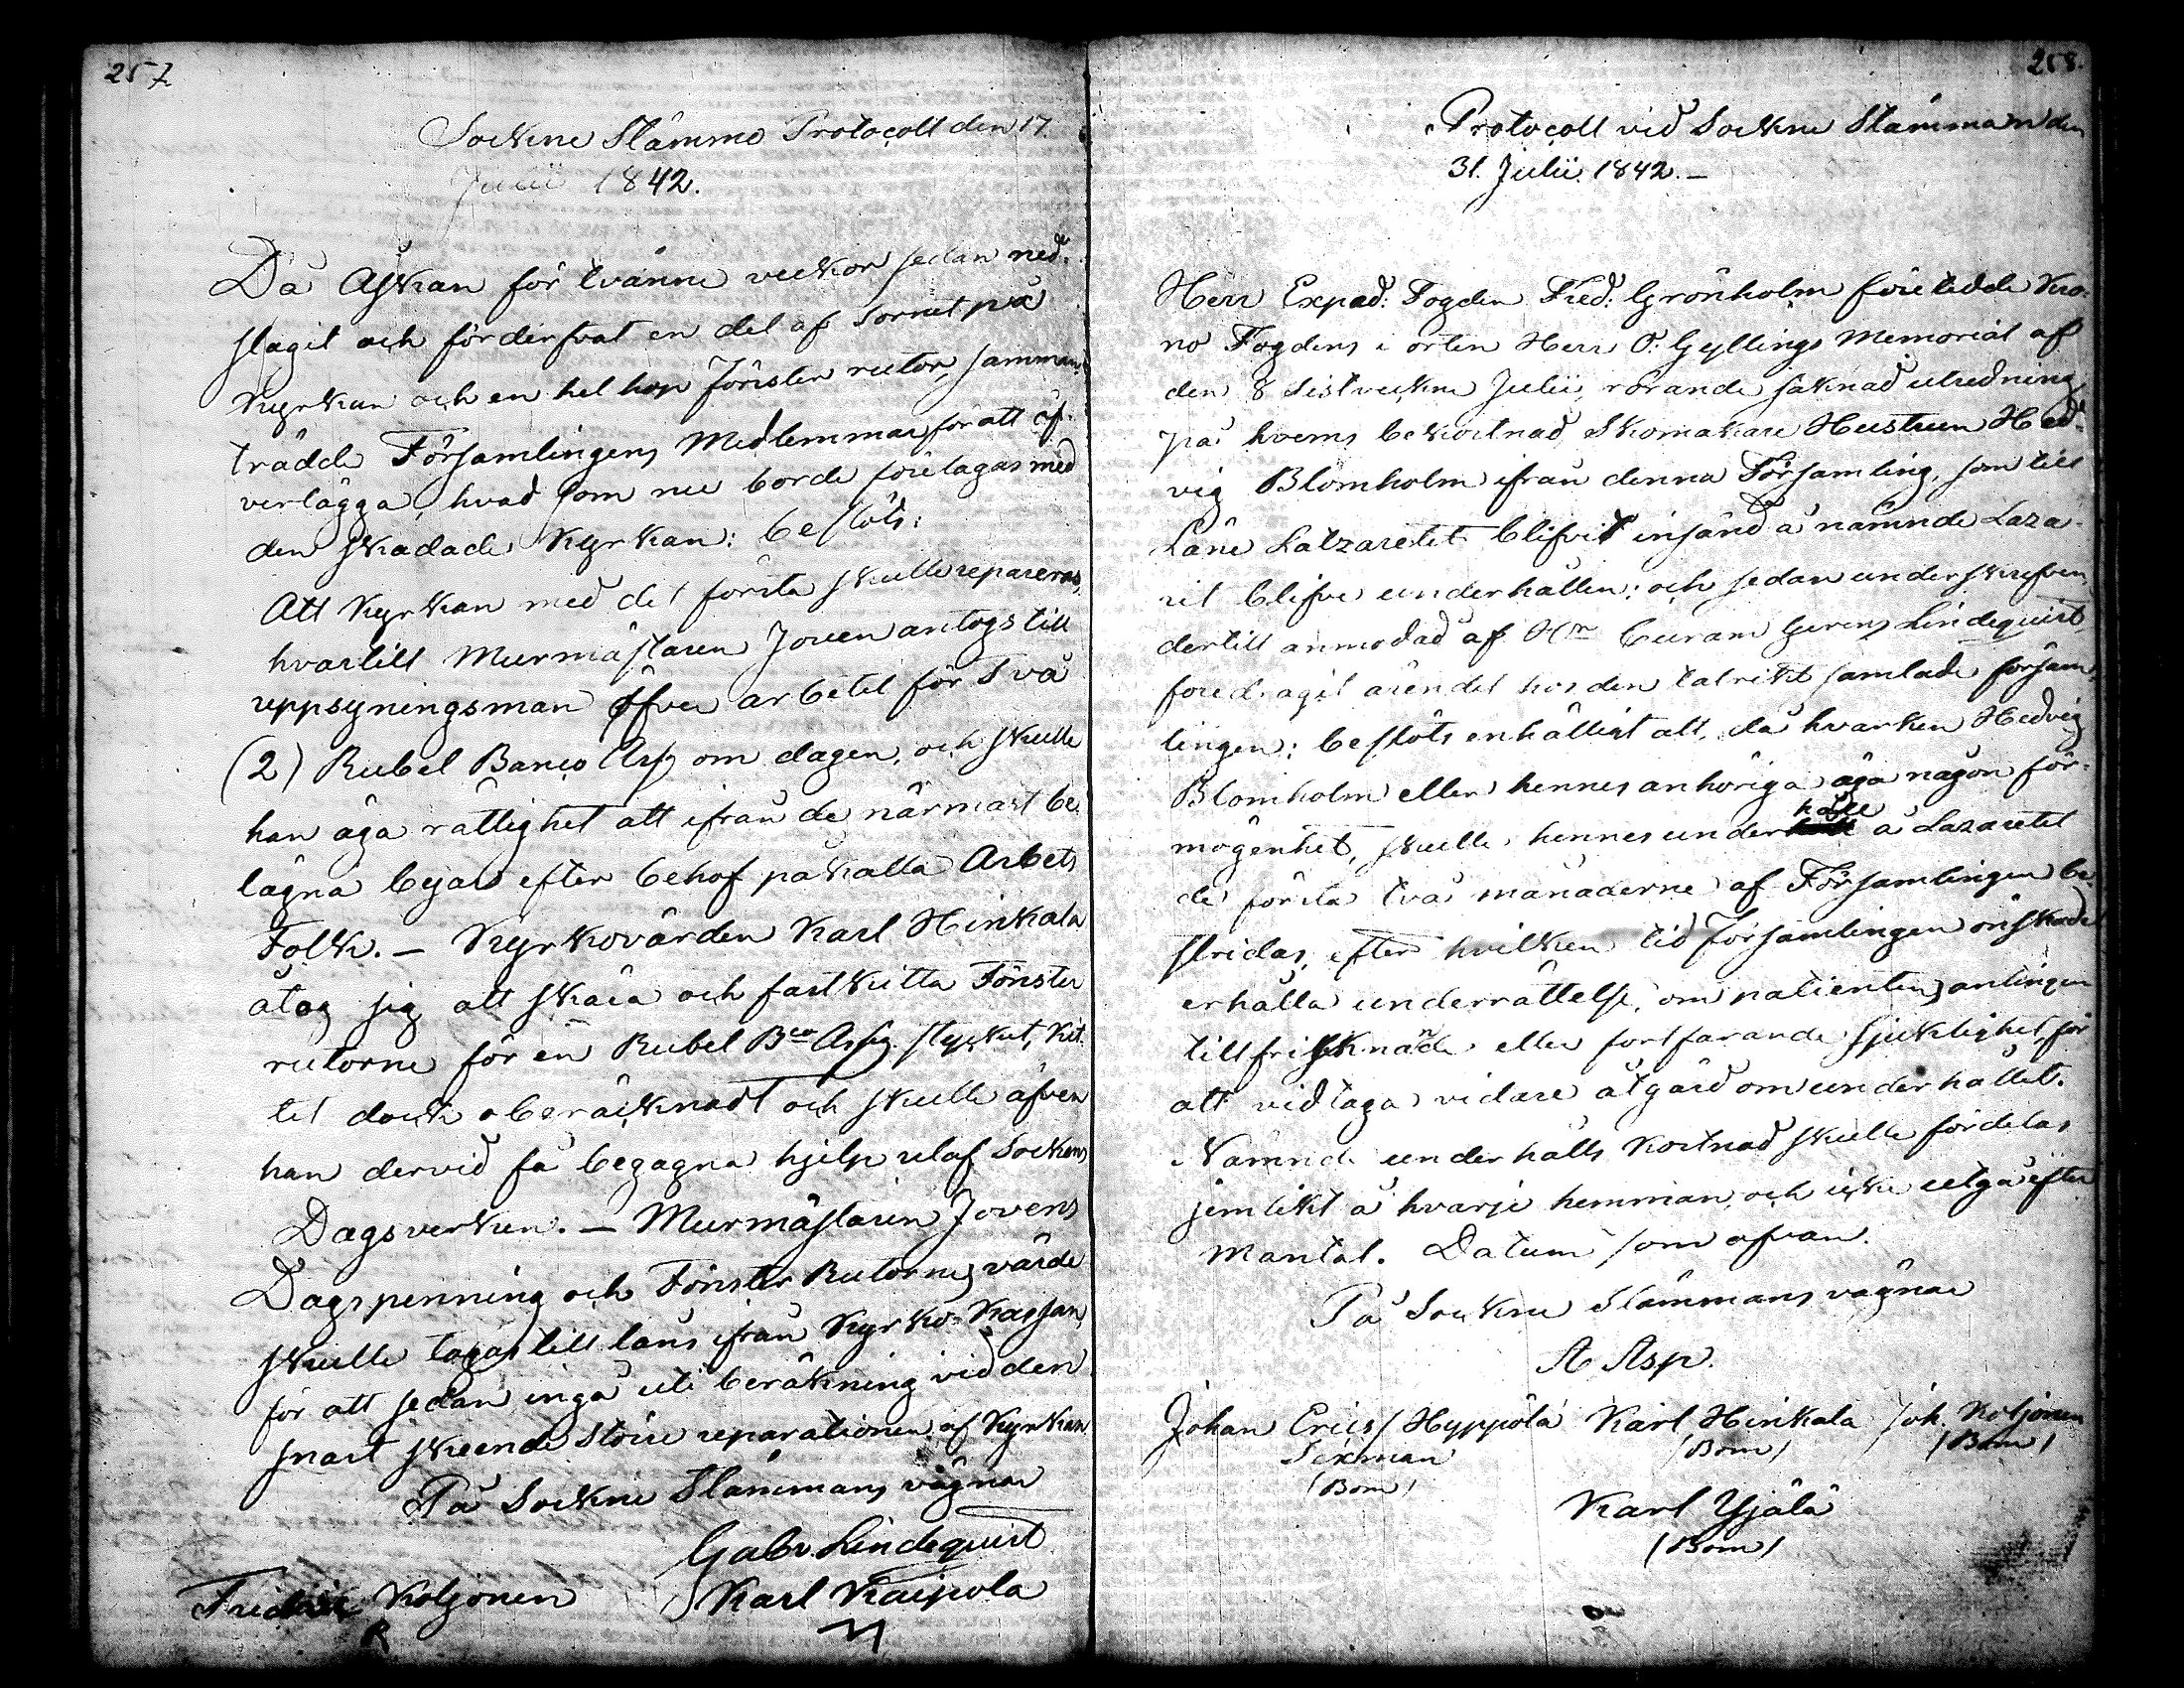 257
Sockne Stämmo Protocoll den 17.
Julii 1842.
Då Åskan för tvänne veckor sedan ned-
slagit och förderfvat en del af Tornet på
Kyrkan och en hel hop Fönster rutor, samman-
trädde Församlingens Medlemmar för att öf-
verlägga, hvad som nu borde företagas med
den skadade Kyrkan: beslöts:
Att Kyrkan med det första skulle repareras,
hvartill Murmästaren Joven antogs till
uppsyningsman öfver arbetet för Två
(2) Rubel Banco Ass. om dagen, och skulle
han äga rättighet att ifrån de närmast be-
lägna byar efter behof påkalla Arbets
Folk. – Kyrkovärden Karl Hinkala
åtog sig att skära och fastkitta Fönster
rutorne för en Rubel Bco Assig. stycket, kit-
tet dock oberäcknadt och skulle äfven
han dervid få begagna hjelp utaf Sockens
Dagsverken. – Murmästaren Jovens
Dagspenning och Fönster Rutornes värde
skulle tagas till låns ifrån Kyrko-Kassan,
för att sedan ingå uti beräkning vid den
snart skeende större reparationen af Kyrkan
På Sockne Stämmans vägnar
Gabr. Lindequist
Fridrik Koljonen Karl Kaipola
258.
Protocoll vid Sockne Stämman den
31. Julii 1842. –
Herr Exped: Fogden Fred: Grönholm föreledde Kro-
no Fogdens i orten Herr O: Gyllings Memorial af
den 8 sistvekne Julii, rörande saknad utredning,
på hvems bekostnad Skomakare Hustrun Hed-
vig Blomholm ifrån denna Församling, som till
Läne Latzaretet blifvit insänd å nämnde Laza-
ret blifver underhållen: och sedan underskrifven,
dertill anmodad af Hrn Curam Gerens Lindequist,
föredragit ärendet hos den talrikt samlade försam-
lingen; beslöts enhälligt att, då hvarken Hedvig
Blomholm eller hennes anhöriga äga någon för-
mögenhet, skulle hennes underhåll å Lazaretet
de första två månaderne af Församlingen be-
stridas, efter hvilken tid Församlingen önskade
erhålla underrättelse, om patientens antingen
tillfrisknande eller fortfarande sjuklighet, för
att vidtaga vidare åtgärd om underhållet.
Nämnde underhålls kostnad skulle fördelas
jemlikt å hvarje hemman, och icke utgå efter
Mantal. Datum som ofvan.
På Sockne Stämmans vägnar
A Asp.
Johan Erics/ Hyppölä Karl Hinkala Joh. Koljonen
Sexman /Bom/ /Bom/
/Bom/
Karl Yjälä
/Bom/